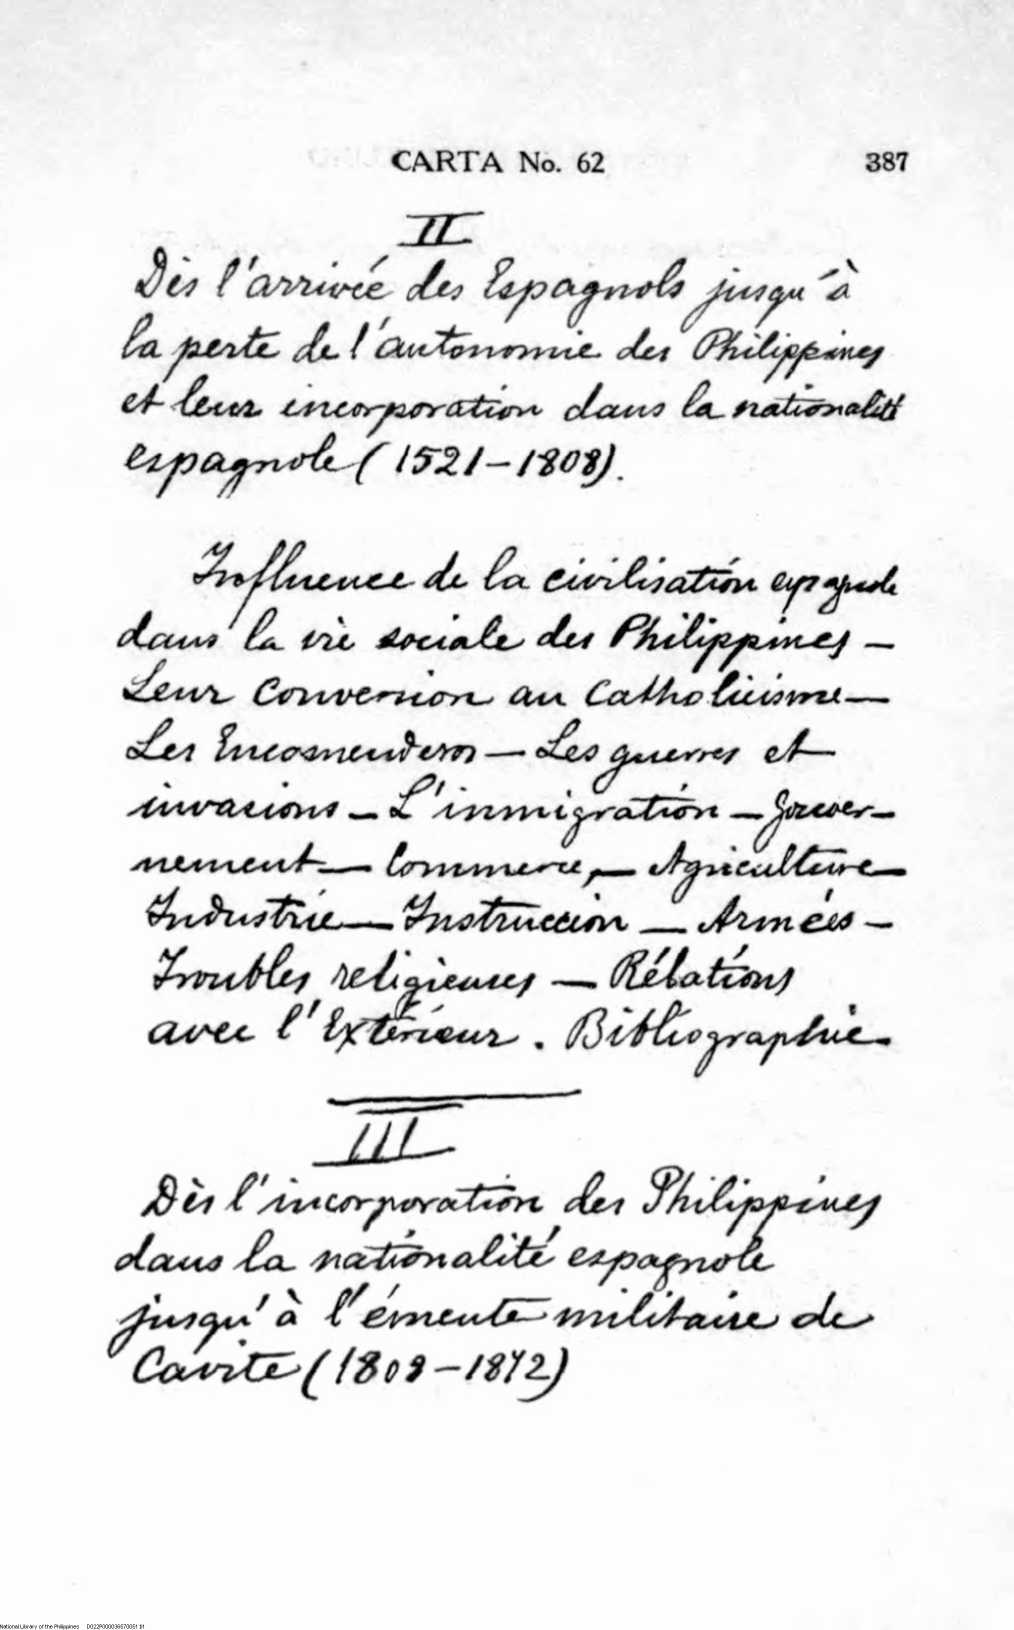 CARTA No. 62 387
II
Dès l'arrivée des Espagnols jusqu'à
la perte de l'autonomie des Philippines
et leur incorporation dans la nationalité
espagnole (1521-1808).
Influence de la civilisation espagnole
dans la vie sociale des Philippines -
Leur conversion au Catholicisme -
Les Encomenderos - Les guerres et
invasions - L'inmigration - Gouver-
nement - Commerce, - Agriculture -
Industrie - Instruccion - Armées -
Troubles religieuses - Rélations
avec l'Extérieur. Bibliographie -
III
Dès l'incorporation des Philippines
dans la nationalité espagnole
jusqu'à l'émeute militaire de
Cavite (1808-1872)
National Library of the Philippines